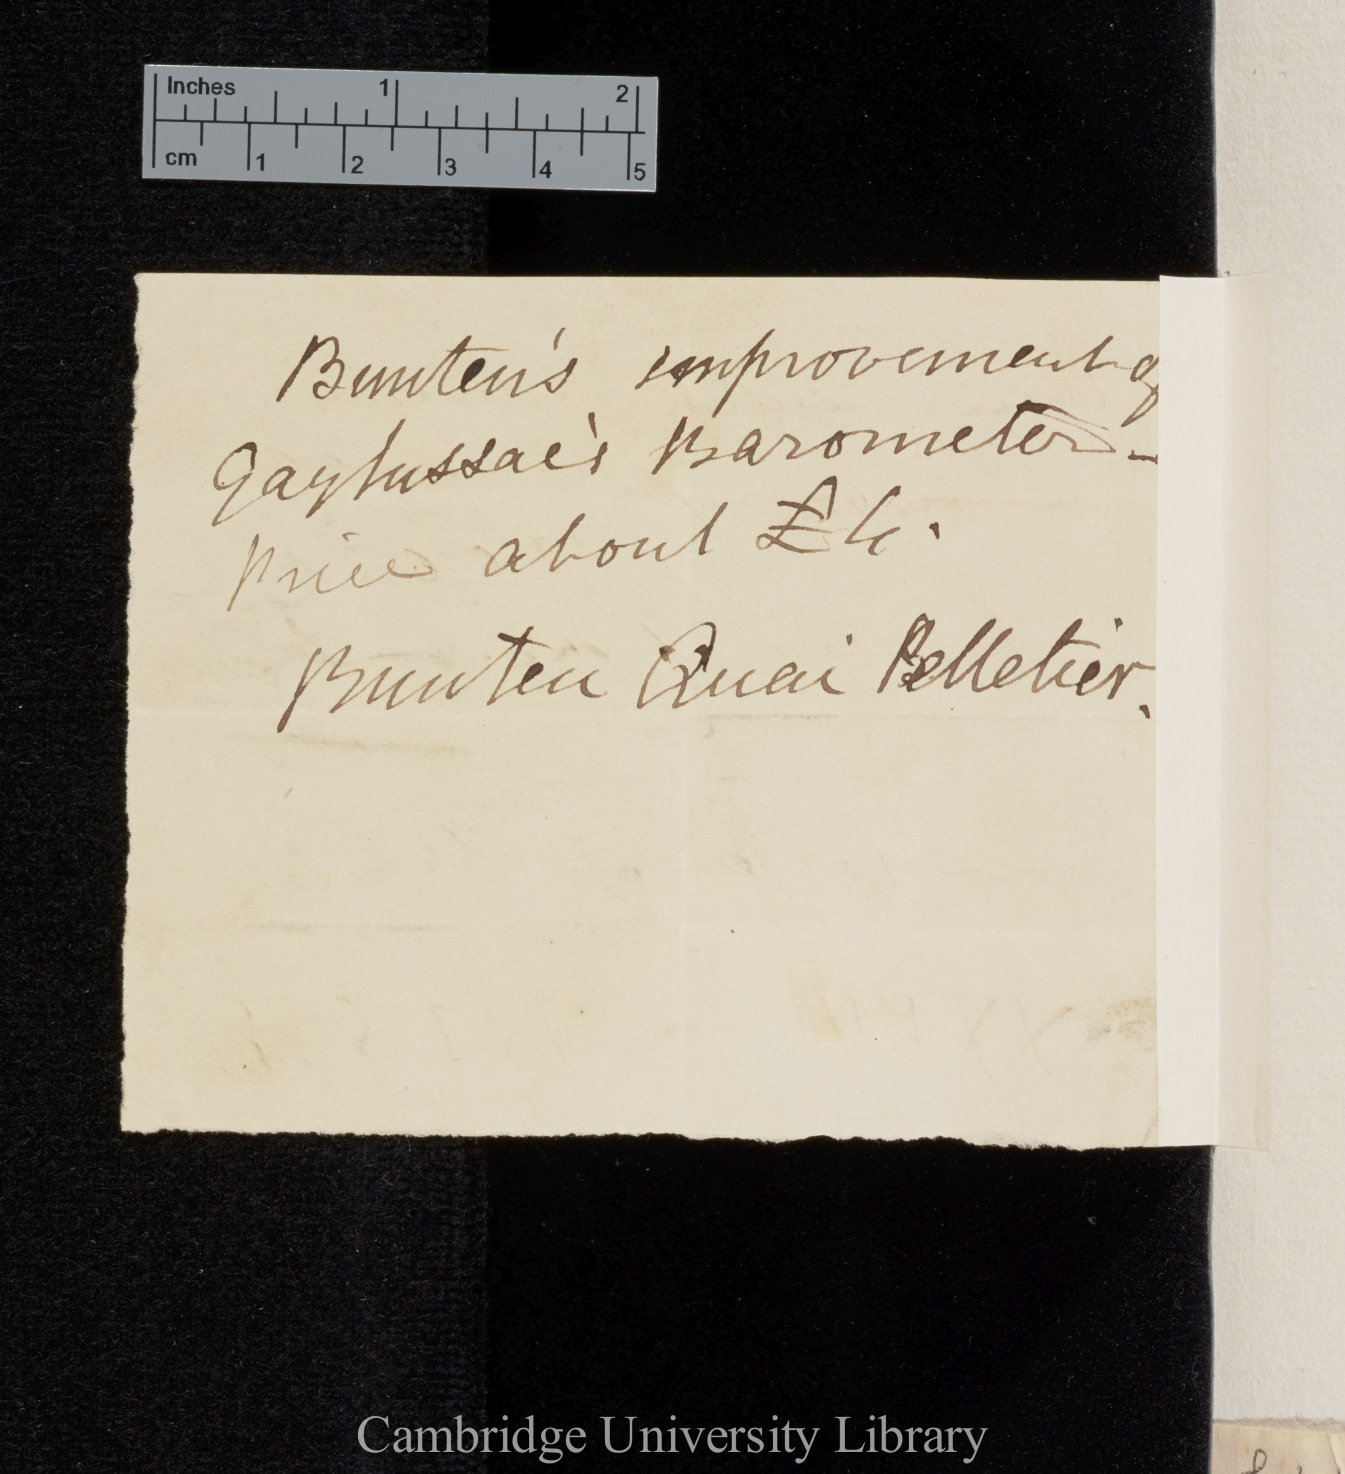 Inches 1 2
cm 1 2 3 4 5
Bunten's improvement of
Gaylussac's Barometer –
Price about £4.
Bunten Quai Pelletier.
Cambridge University Library